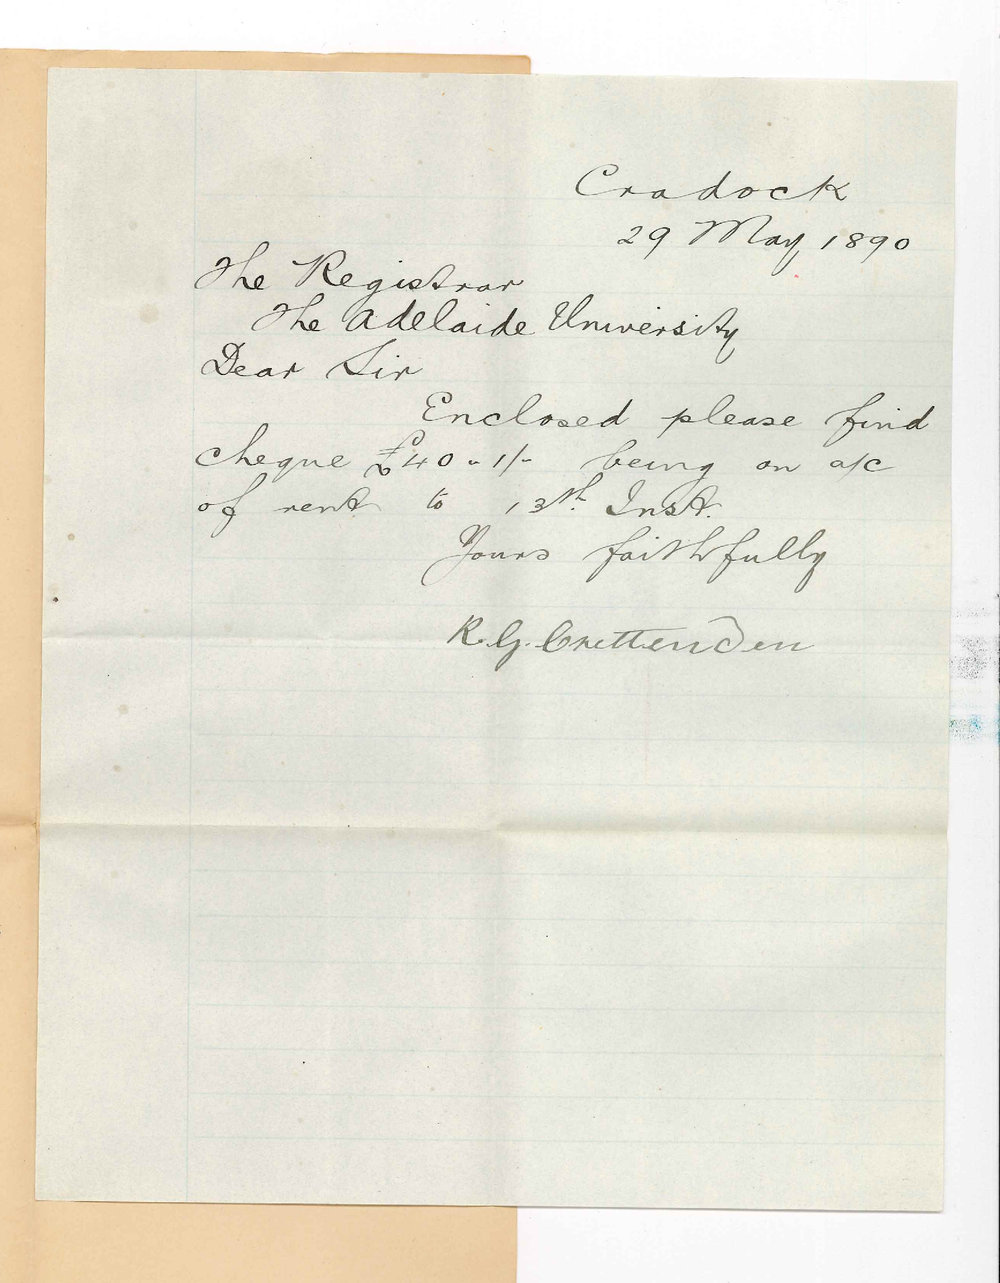 Cradock
29 May 1890
The Registrar
The Adelaide University
Dear Sir
Enclosed please find
cheque £40-1/- being on a/c
of rent to 13th. Inst.
Yours faithfully
R. G. Crettenden